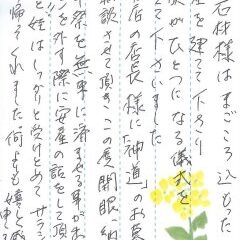 石材様はまごころ込もった
を建てて下さり
がひとつになる儀式を
て下さいました
の店長様に「神道」のお
談させて頂き、この度開眼、納
祭を無事に済ませる事がお
ンを外す際に安産の話をして頂
と姪はしっかりと受けとめて サラシ
帰ってくれました 何よりも嬉しく感
申して